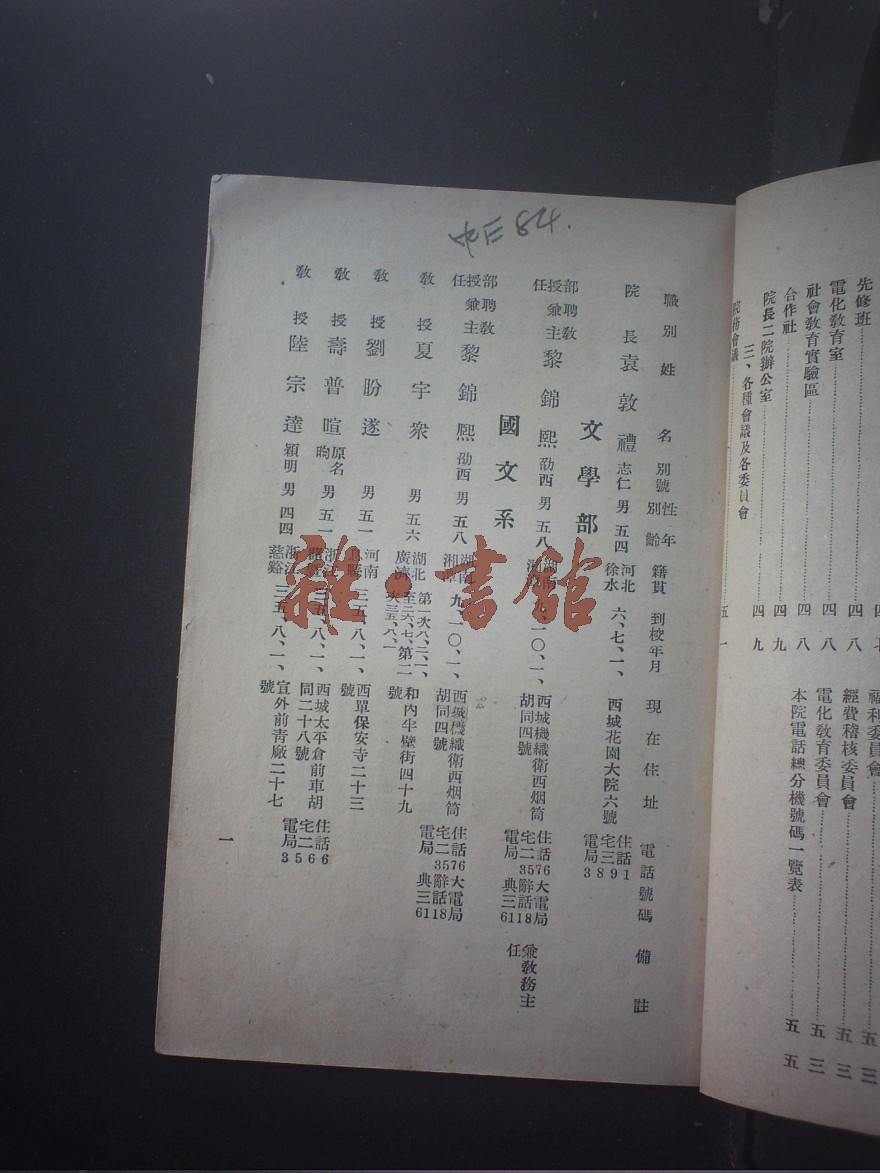 先修班
電化教育室 四八
社會教育實驗區 四八
合作社 四八
院長二院辦公室 四九
三、各種會議及各委員會
院務會議 五一
福利委員會 五三
經費稽核委員會 五三
電化教育委員會 五三
本院電話總分機號碼一覽表 五五
職別 姓名 別號 性別 年齡 籍貫 到校年月 現在住址 電話號碼 備註
院長 袁敦禮 志仁 男 五四 河北徐水 六、七、一、 西城花園大院六號 住宅電話三局
文學部
部聘教授兼主任 黎錦熙 劭西 男 五八 湖南湘潭 九、一〇、一、 西城機織衛西烟筒胡同四號 兼教務主任
國文系
部聘教授兼主任 黎錦熙 劭西 男 五八 湖南湘潭 九、一〇、一、 西城機織衛西烟筒胡同四號
教授 夏宇衆 男 五六 湖北廣濟 和內半壁街四十九號
教授 劉盼遂 男 五一 河南息縣 三五、八、一、 西單保安寺二十三號
教授 壽普暄 原名昀 男 五一 浙江諸暨 三五、八、一、 西城太平倉前車胡同二十八號
教授 陸宗達 穎明 男 四四 浙江慈谿 三五、八、一、 宣外前青廠二十七號
一
雜·書館